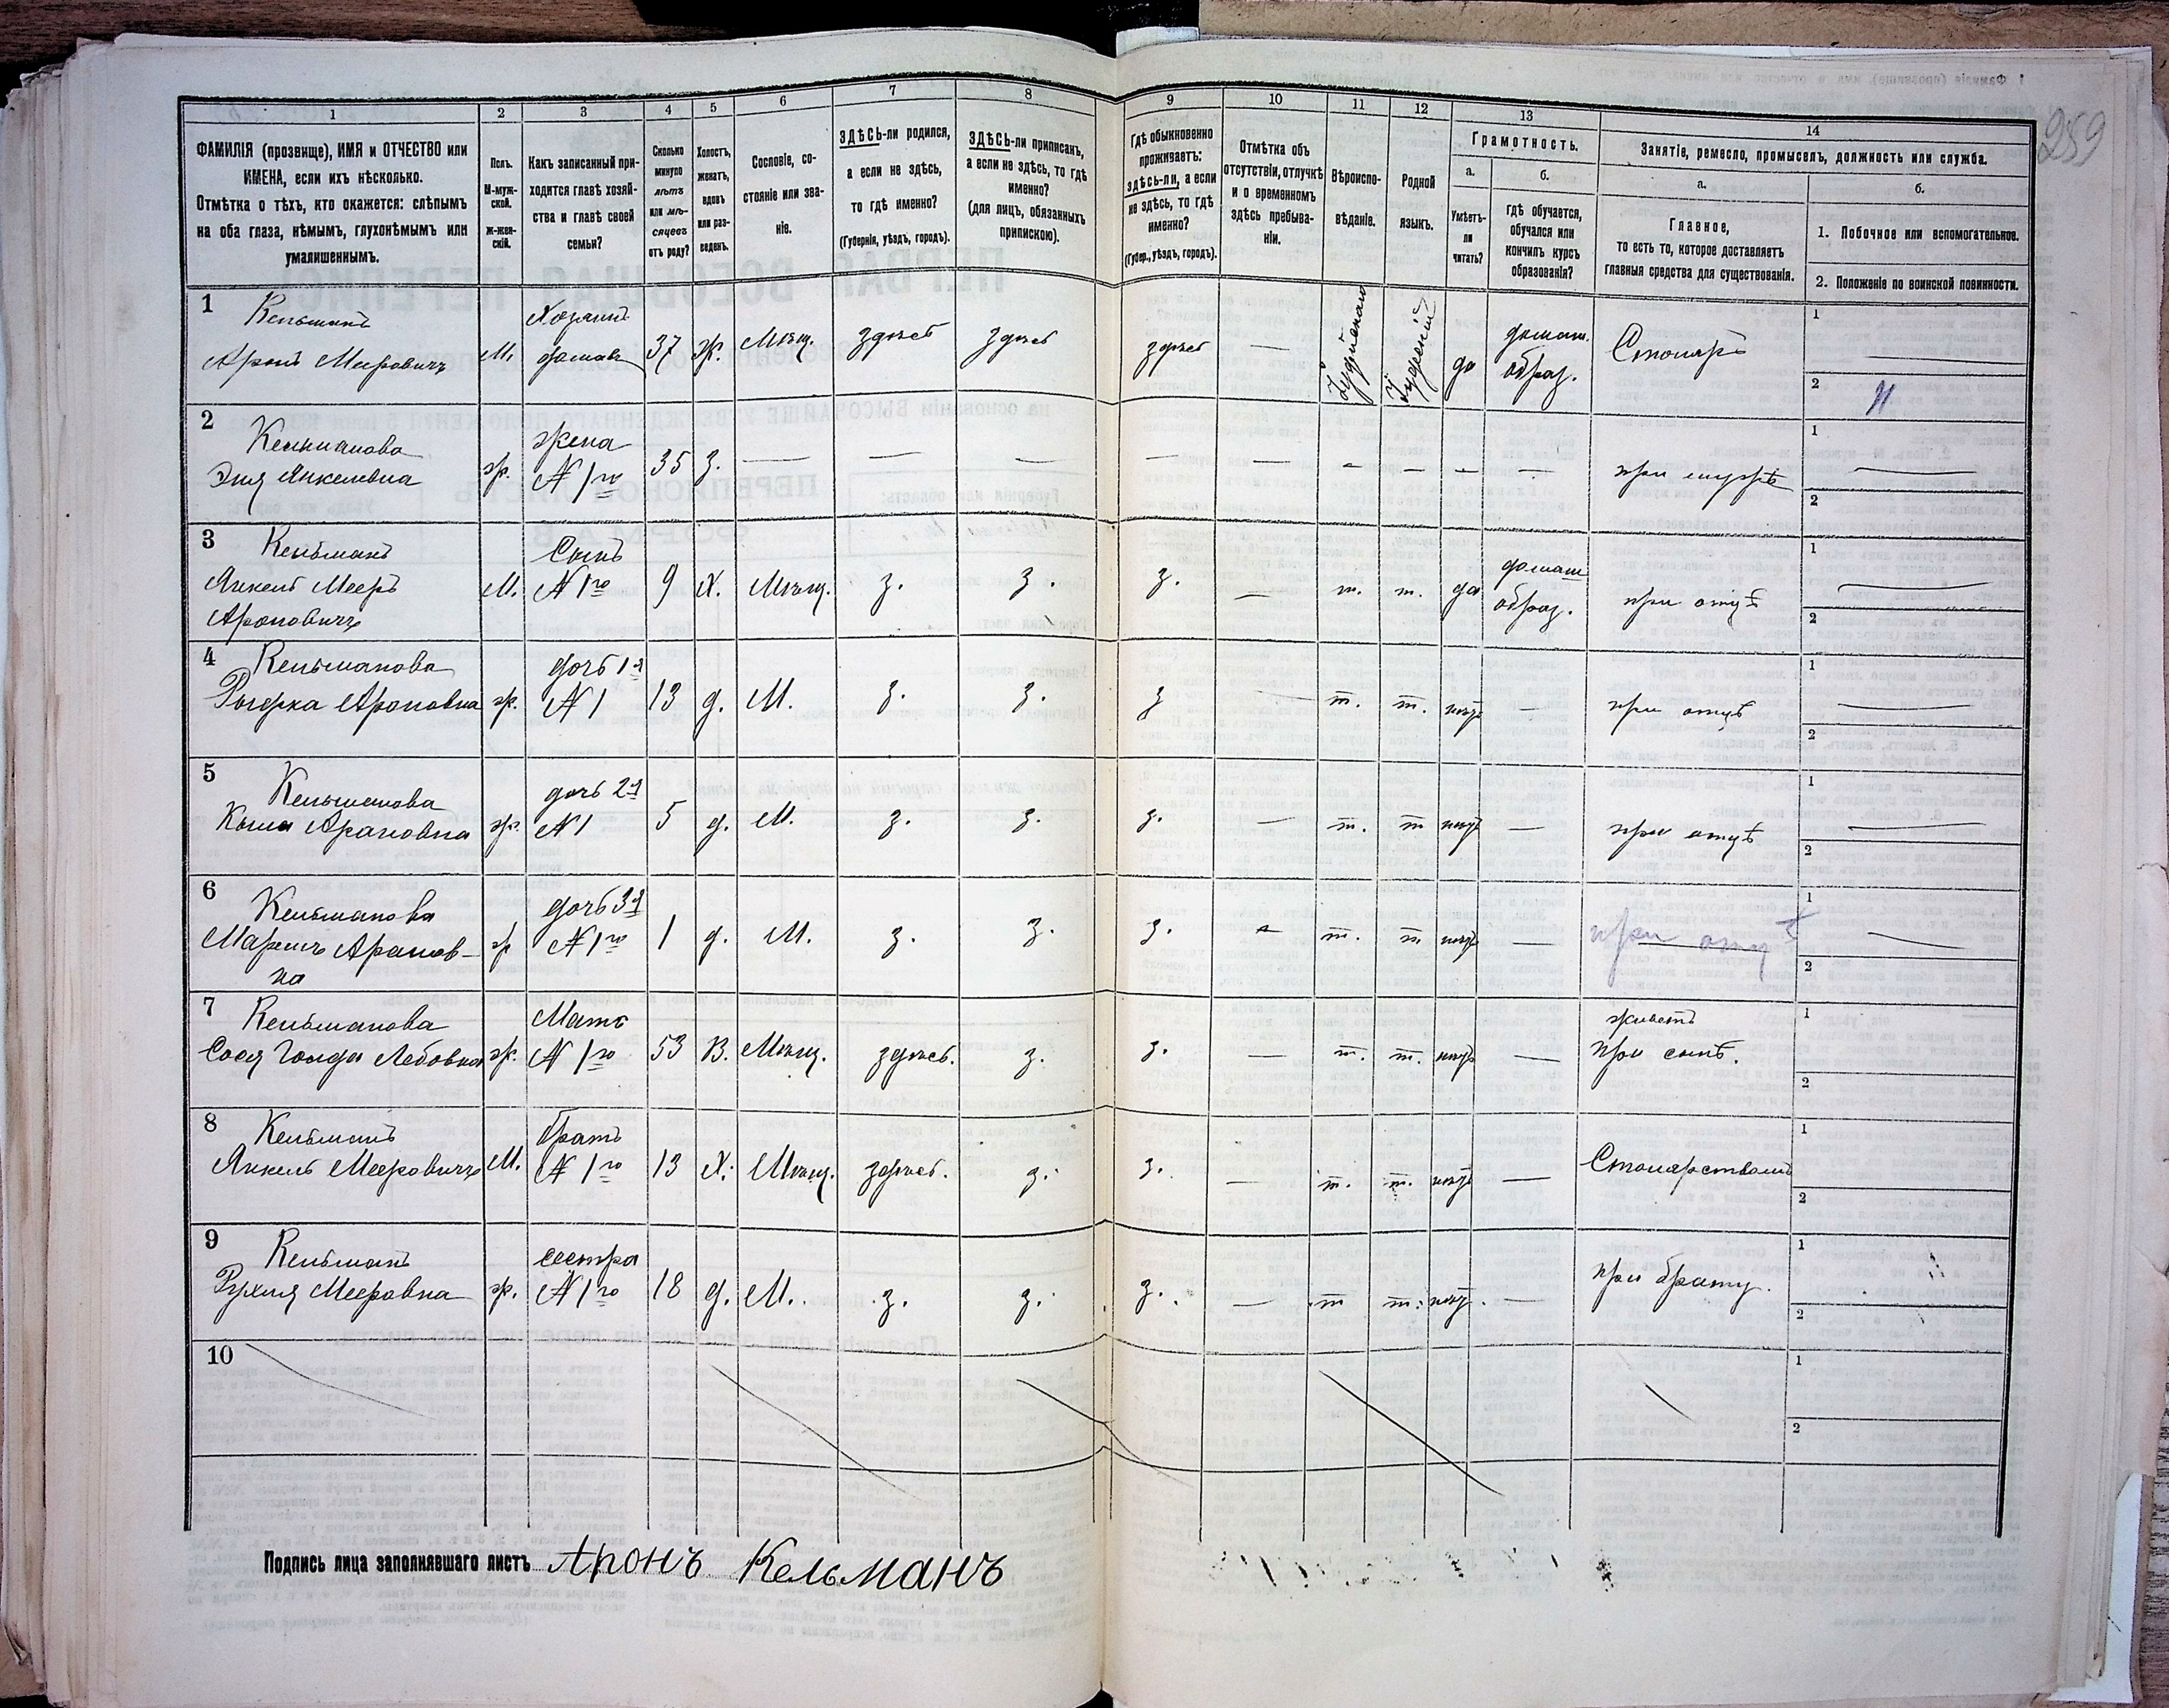 259
1
2
3
4
5
6
7
8
9
10
11
12
13
14
ФАМИЛІЯ (прозвище), ИМЯ и ОТЧЕСТВО или
ИМЕНА, если ихъ нѣсколько.
Отмѣтка о тѣхъ, кто окажется: слѣпымъ
на оба глаза, нѣмымъ, глухонѣмымъ или
умалишеннымъ.
Полъ.
М-муж-
ской.
Ж-жен-
скій.
Какъ записанный при-
ходится главѣ хозяй-
ства и главѣ своей
семьи?
Сколько
минуло
лѣтъ
или мѣ-
сяцевъ
отъ роду?
Холостъ,
женатъ,
вдовъ
или раз-
веденъ.
Сословіе, со-
стояніе или зва-
ніе.
ЗДѢСЬ-ли родился,
а если не здѣсь,
то гдѣ именно?
(Губернія, уѣздъ, городъ).
ЗДѢСЬ-ли приписанъ,
а если не здѣсь, то гдѣ
именно?
(для лицъ, обязанныхъ
припискою).
Гдѣ обыкновенно
проживаетъ:
здѣсь-ли, а если
не здѣсь, то гдѣ
именно?
(Губер., уѣздъ, городъ).
Отмѣтка объ
отсутствіи, отлучкѣ
и о временномъ
здѣсь пребыва-
ніи.
Вѣроиспо-
вѣданіе.
Родной
языкъ.
Грамотность.
а.
Умѣетъ-
ли
читать?
б.
гдѣ обучается,
обучался или
кончилъ курсъ
образованія?
Занятіе, ремесло, промыселъ, должность или служба.
а.
Главное,
то есть то, которое доставляетъ
главныя средства для существованія.
б.
1. Побочное или вспомогательное.
2. Положеніе по воинской повинности.
1
Кельманъ
Аронъ Мееровичъ
М.
Хозяинъ
37
Ж.
Мѣщ.
здѣсь
здѣсь
здѣсь
—
Іудейскаго
да
домаш.
образ.
Столяръ
1
2
2
Кельманова
Эня Янкелевна
ж.
жена
№ 1го
35
З.
—
—
—
—
—
—
—
—
—
при мужѣ
1
2
3
Кельманъ
Янкель Мееръ
Ароновичъ
М.
Сынъ
№ 1го
9
Х.
Мѣщ.
з.
з.
з.
—
т.
т.
да
домаш
образ.
при отцѣ
1
2
4
Кельманова
Ароновна
ж.
дочь 1я
№ 1
13
д.
М.
з.
з.
з
—
т.
т.
нѣтъ
—
при отцѣ
1
2
5
Кельманова
Ароновна
ж.
дочь 2я
№ 1
5
д.
М.
з.
з.
з.
—
т.
т
нѣтъ
—
при отцѣ
1
2
6
Кельманова
Аронов-
на
ж
дочь 3я
№ 1го
1
д.
М.
з.
з.
з.
—
т.
т
нѣтъ
—
при отцѣ
1
2
7
Кельманова
Голда Лебовна
ж.
Мать
№ 1го
53
В.
Мѣщ.
здѣсь.
з.
з.
—
т.
т.
нѣтъ
—
живетъ
при сынѣ.
1
2
8
Кельманъ
Янкель Мееровичъ
М.
братъ
№ 1го
13
Х.
Мѣщ.
здѣсь.
з.
з.
—
т.
т.
нѣтъ
—
Столярствомъ
1
2
9
Кельманъ
Рухля Мееровна
ж.
сестра
№ 1го
18
д.
М.
з.
з.
з.
—
т
т.
нѣт.
—
при брату.
1
2
10
1
2
Подпись лица заполнявшаго листъ Аронъ Кельманъ